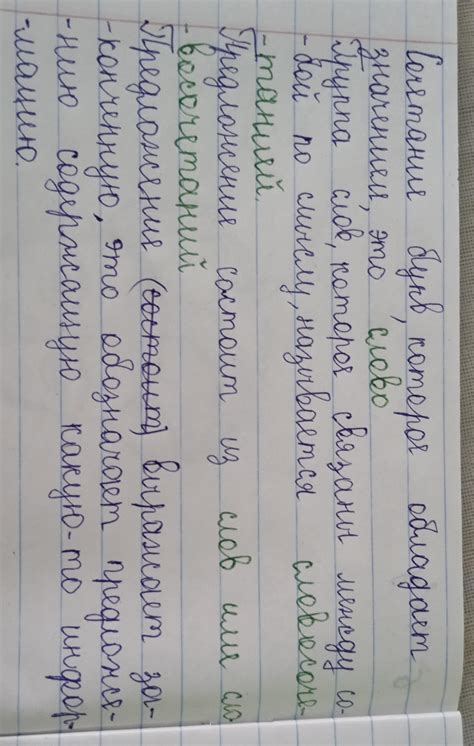 Сочетание букв, которое обладает
значением, это слово
Группа слов, которая связаны между со-
-бой по смыслу, называется словосоче-
-танией.
Предложение состоит из слов или сло
-восочетаний
Предложения (состоит) выражает за-
-конченную, это обозначает предложе-
-нию содержащую какую-то инфор-
-мацию.